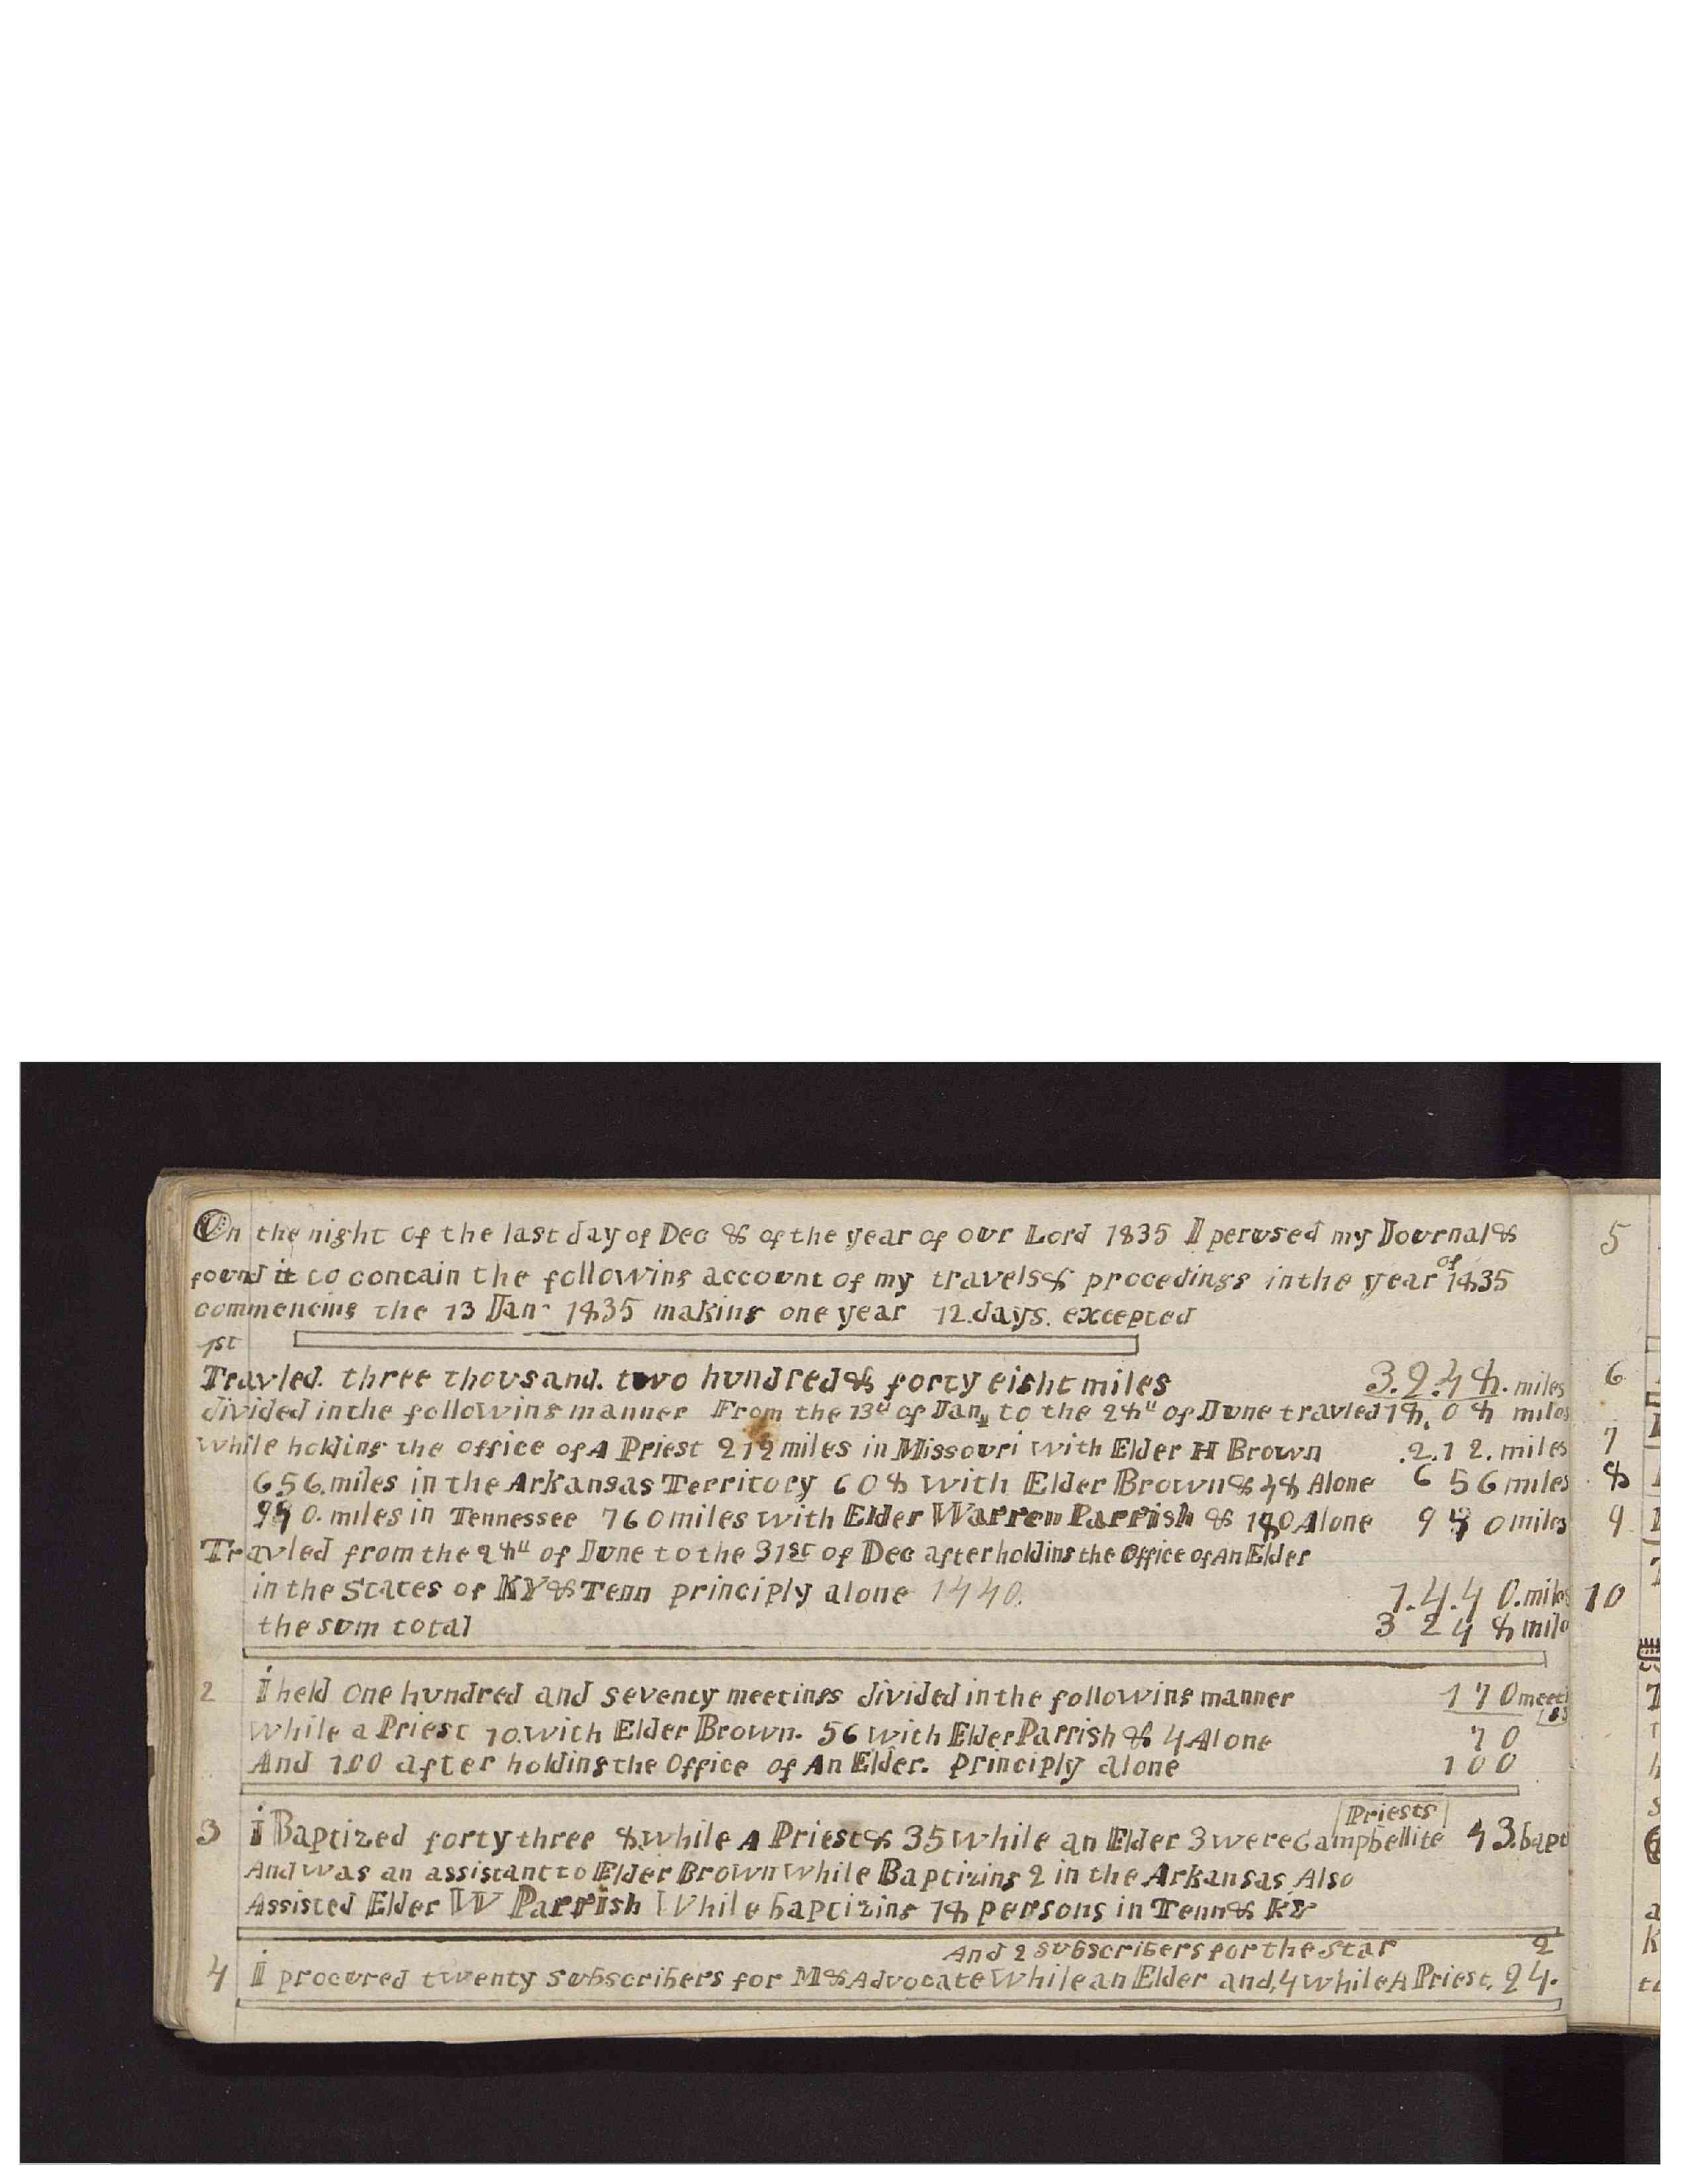 On the night of the last day of Dec & of the year of our Lord 1835 I perused my Journal &
found it to contain the following account of my travels & procedings in the year of 1835
commencing the 13 Jan 1835 making one year 12 days. excepted
1st
Travled. three thousand. two hundred & forty eight miles 3.2.4 8. miles
divided in the following manner From the 13th of Jany to the 28th of June travled 18.08 miles
while holding the office of A Priest 212 miles in Missouri with Elder H Brown .2.1 2. miles
656. miles in the Arkansas Territory 608 with Elder Brown & 48 Alone 656 miles
940. miles in Tennessee 760 miles with Elder Warren Parrish & 180 Alone 940 miles
Travled from the 28th of June to the 31st of Dec after holding the Office of An Elder
in the States of KY & Tenn principly alone 1440. 1.4.4 0. miles
the sum total 3 2 4 8 mile
2 i held one hundred and seventy meetings divided in the following manner 170 meetings
while a Priest 10 with Elder Brown. 56 with Elder Parrish & 4 Alone 70
And 100 after holding the Office of An Elder. principly alone 100
Priests
3 i Baptized forty three 8 while A Priest & 35 while an Elder 3 were Campbellite 43. bapt
And was an assistant to Elder Brown while Baptizing 2 in the Arkansas Also
Assisted Elder W Parrish While baptizing 18 persons in Tenn & KY
And 2 subscribers for the Star 2
4 I procured twenty subscribers for M & Advocate while an Elder and, 4 while A Priest. 24.
5
6
7
8
9
10